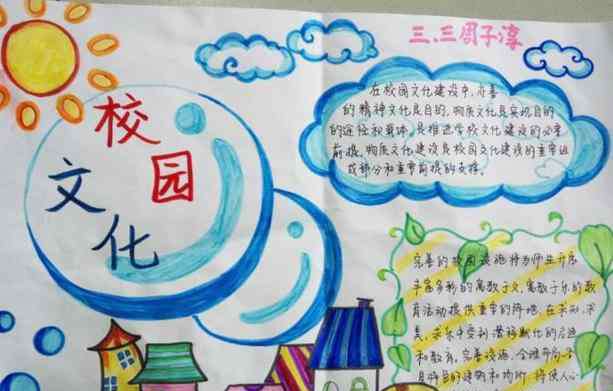 三.三周子淳
校园
文化
在校园文化建设中，完善
的精神文化是目的，物质文化是实现目的
的途径和载体，是推进学校文化建设的必要
前提。物质文化建设是校园文化建设的重要组
成部分和重要前提的支撑。
完善的校园设施将为师生开展
丰富多彩的寓教于文，寓教于乐的教
育活动提供重要的阵地，在求知、求
美、求乐中受到潜移默化的启迪
和教育。完善设施、合理布局、各
具特色的建筑和场所，将使人心